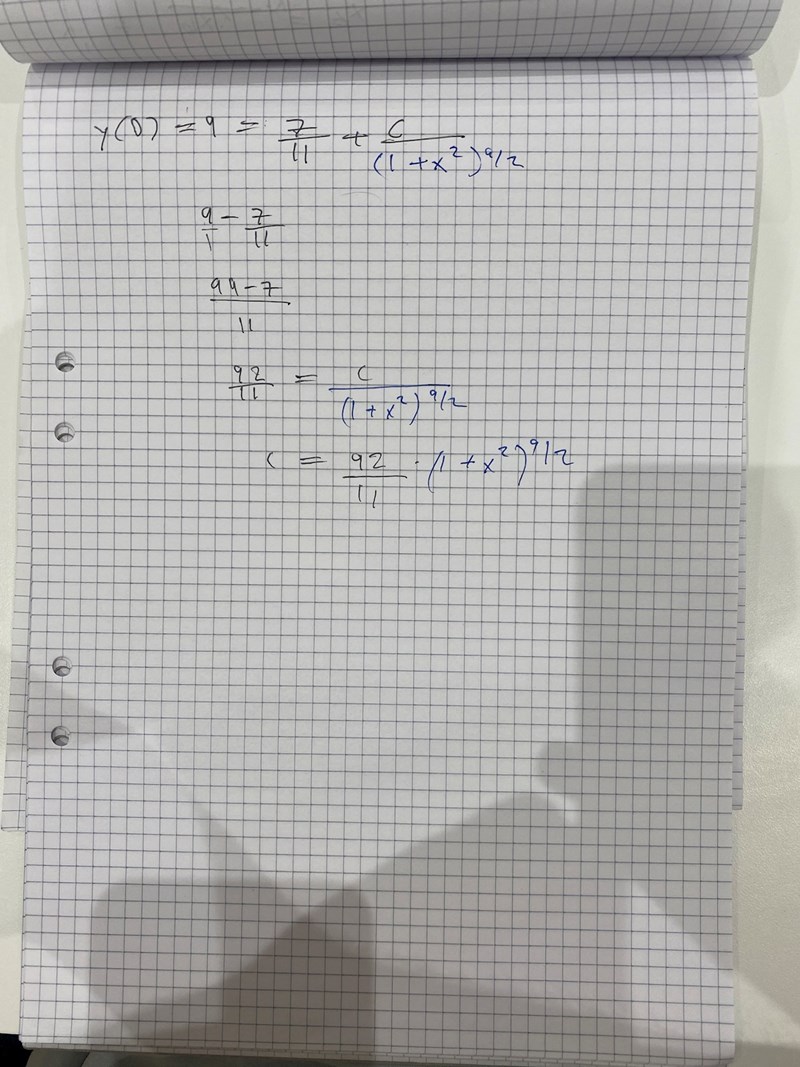 y(0) = 9 = 7/11 + C/(1 + x²)^9/2
9/1 - 7/11
99-7/11
92/11 = C/(1 + x²)^9/2
C = 92/11 · (1 + x²)^9/2